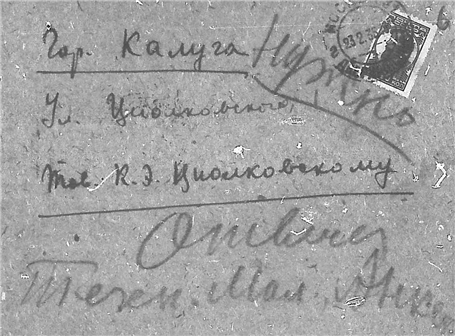 Гор. Калуга
Нужно
Ул. Циолковского
Тов. К. Э. Циолковскому
Ответ
Техн. Мол.